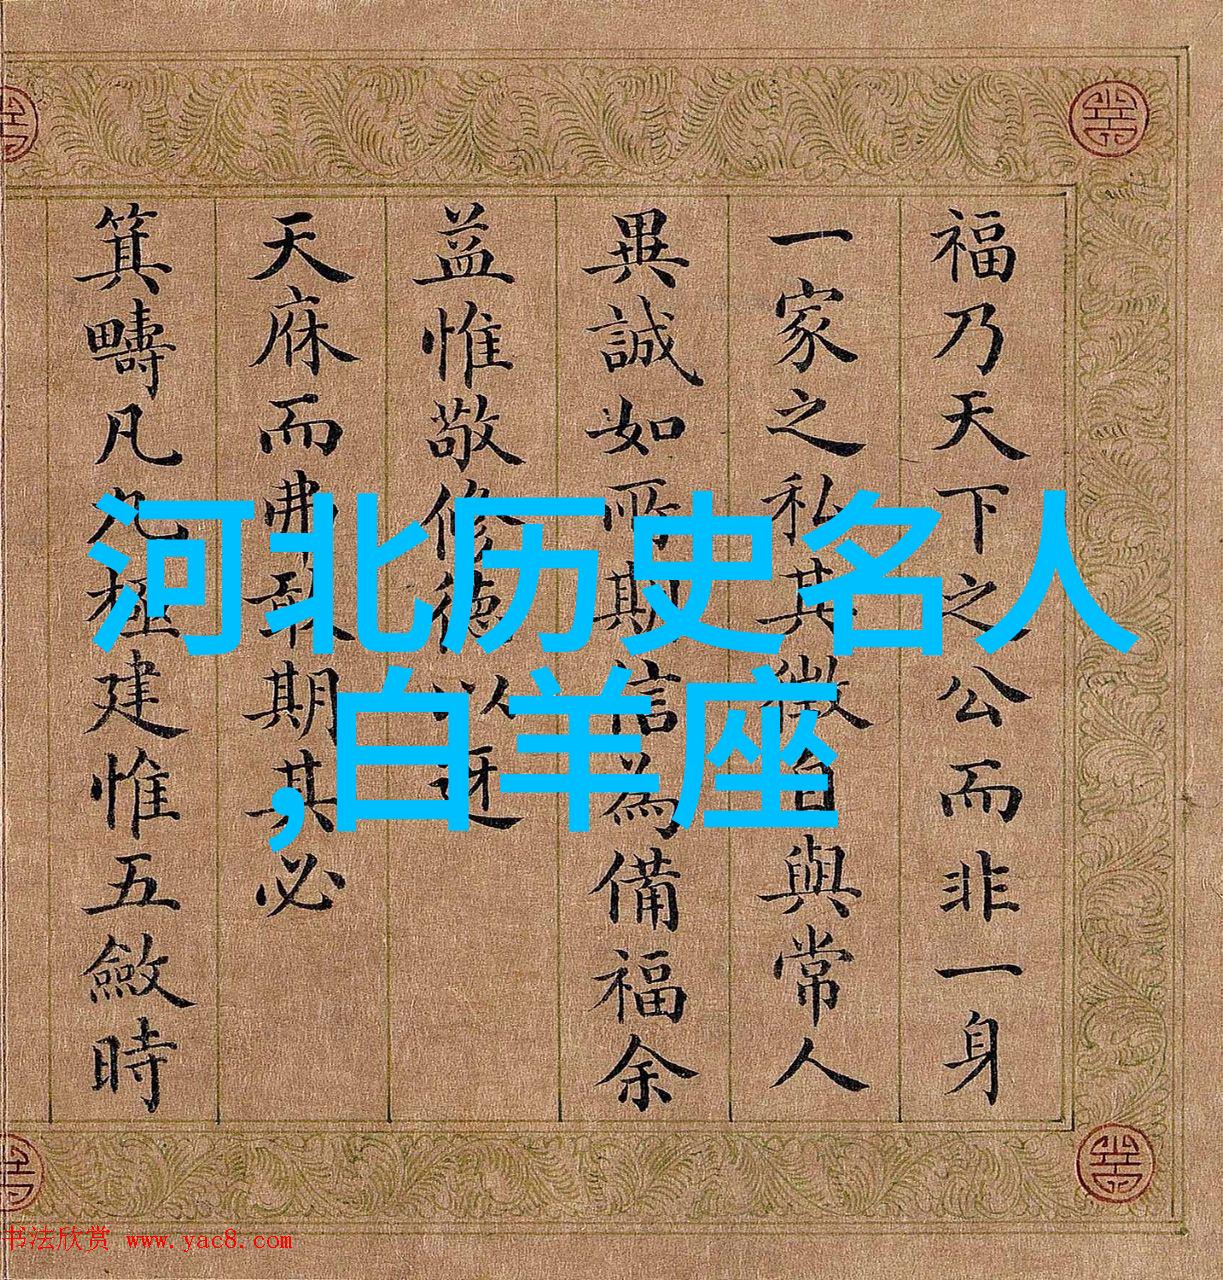 福乃天下之公而非一身
一家之私其徵自與常人
異誠如所期信為備福余
益惟敬修德以迓
天庥而弗敢期其必
箕疇凡九極建惟五斂時
河北历史名人
,白羊座
书法欣赏 www.yac8.com